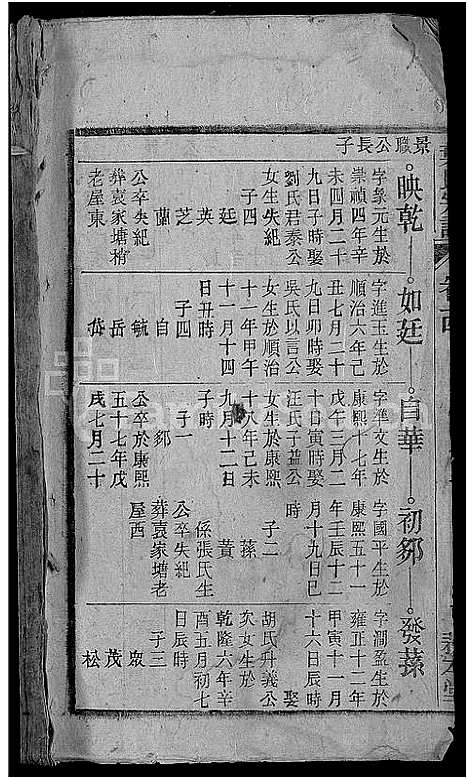 景職公長子
映乾
字象元生於
崇禎四年辛
未四月二十
九日子時娶
劉氏君泰公
女生失紀
子四
廷 英 芝 蘭
公卒失紀
葬袁家塘梢
老屋東
如廷
字進玉生於
順治六年己
丑七月二十
九日卯時娶
吳氏以言公
女生於順治
十一年甲午
十一月十四
日丑時
子四
自 毓 岳 岱
自華
字準文生於
康熙十七年
戊午三月二
十日寅時娶
汪氏子益公
女生於康熙
十八年己未
九月十二日
子時
子一
初
公卒於康熙
五十七年戊
戌七月二十
時
初
字國平生於
康熙五十一
年壬辰十二
月十九日巳
子二
蓀 黃
係張氏生
公卒失紀
葬袁家塘老
屋西
發蓀
字潤盈生於
雍正十二年
甲寅十一月
十六日辰時
娶
胡氏丹義公
次女生於
乾隆六年辛
酉五月初七
日辰時
子三
眾 茂 松